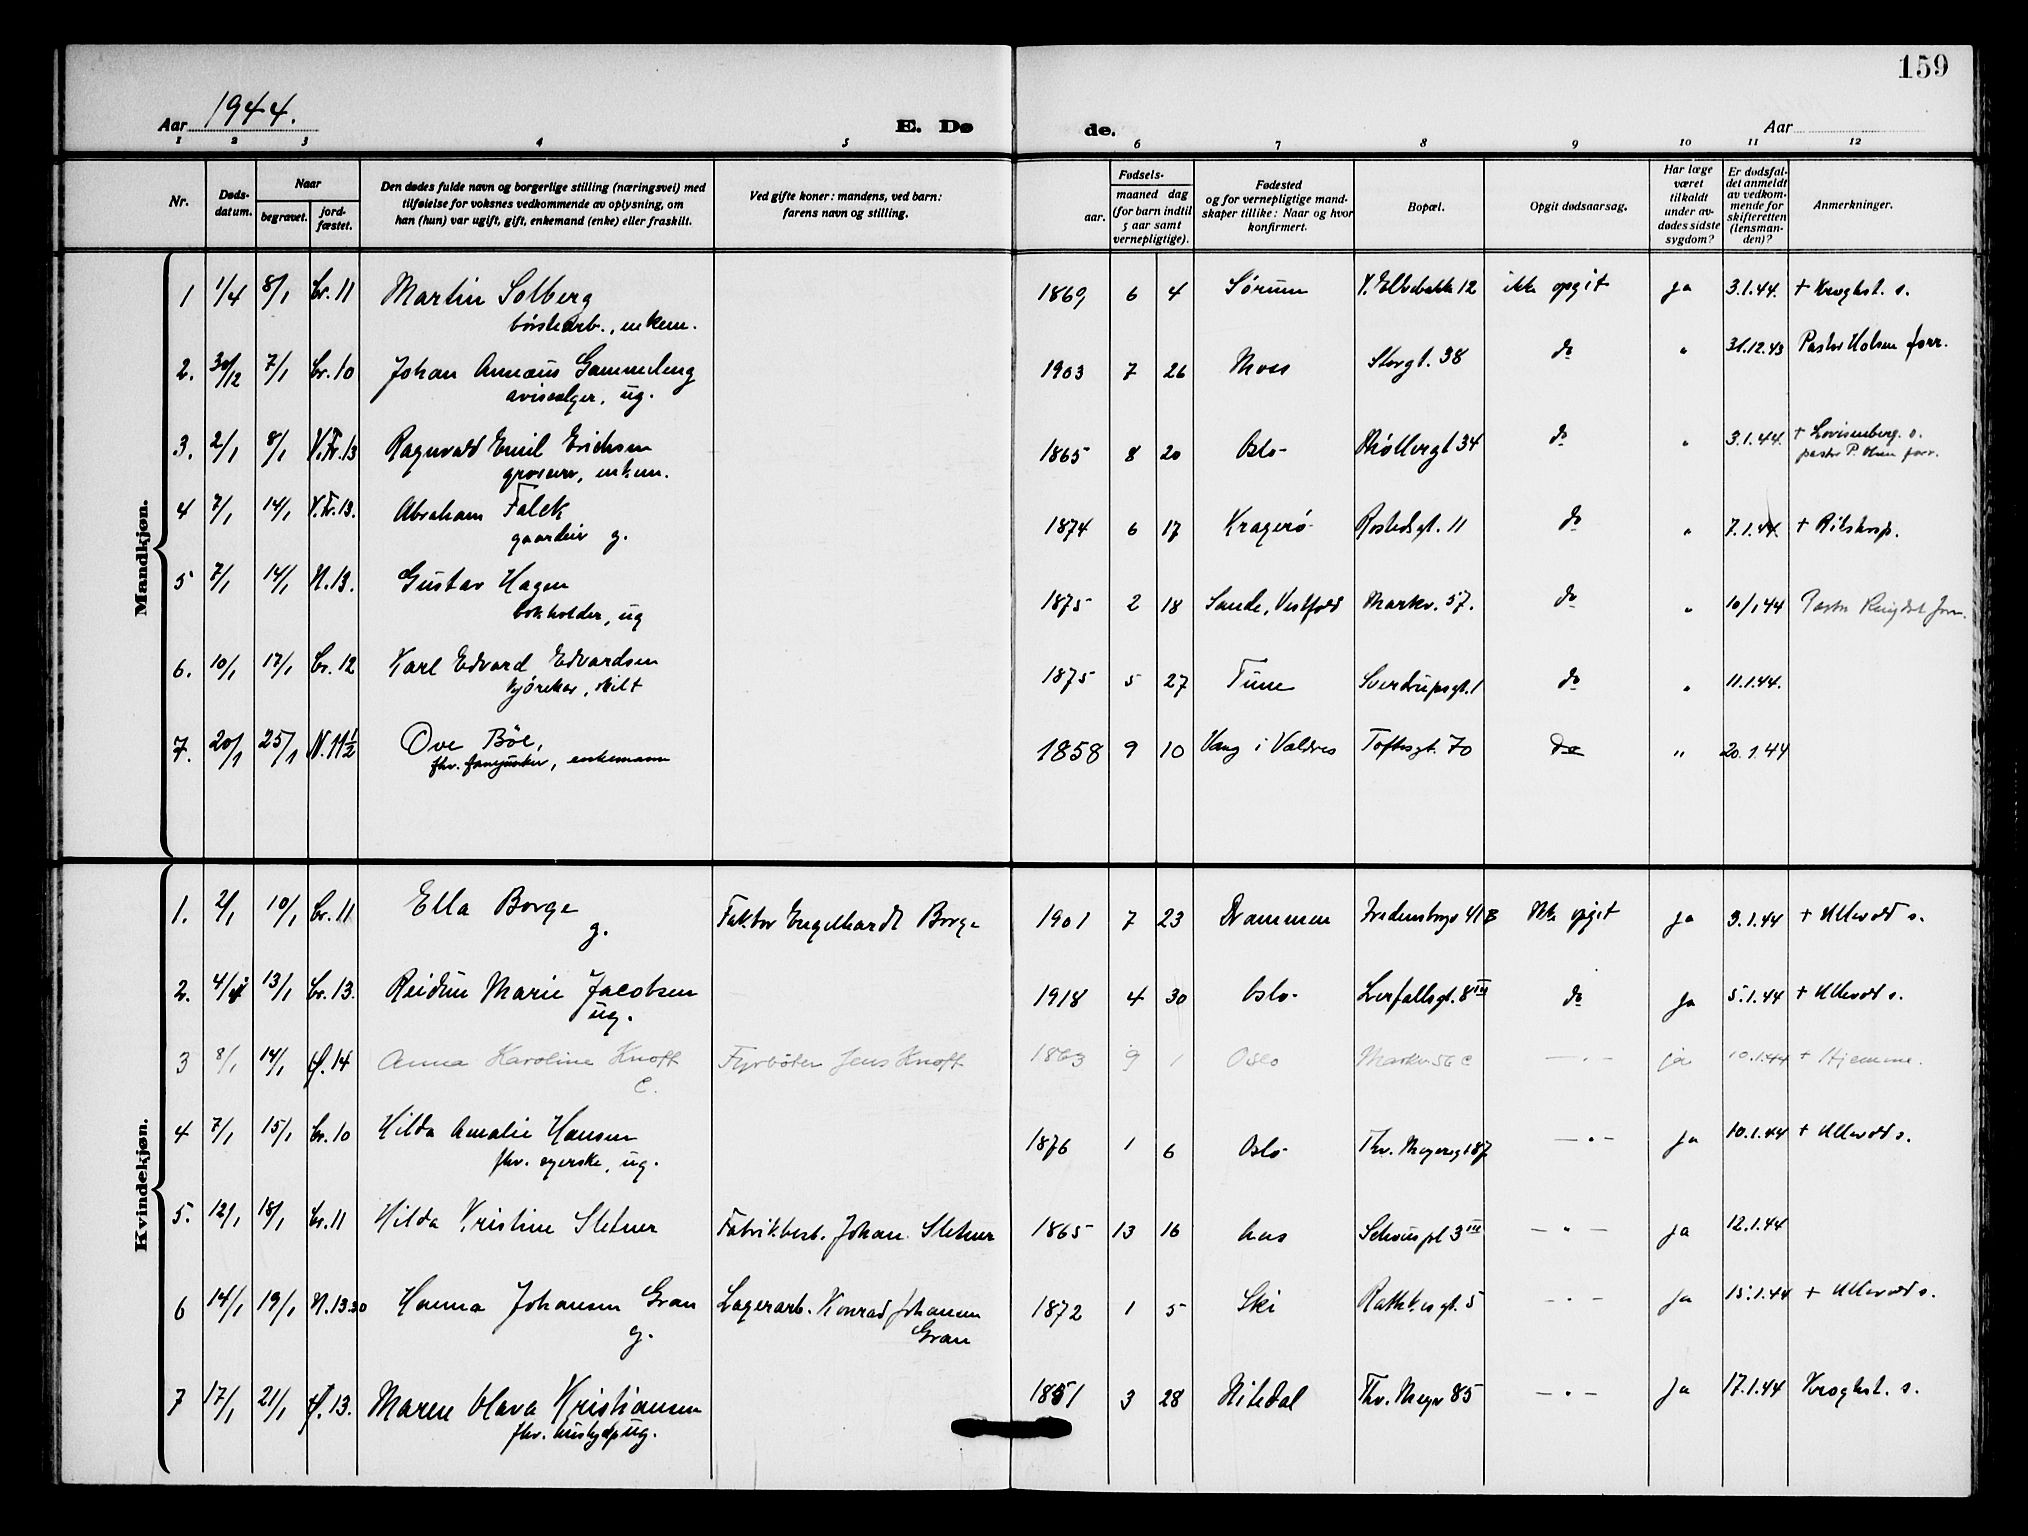 159
Aar 1944.
E. Dø de.
Aar
1 2 3 4 5 6 7 8 9 10 11 12
Nr.
Døds-datum.
Naar
begravet.
jord-fæstet.
Den dødes fulde navn og borgerlige stilling (næringsvei) med
tilføielse for voksnes vedkommende av oplysning, om
han (hun) var ugift, gift, enkemand (enke) eller fraskilt.
Ved gifte koner: mandens, ved barn:
farens navn og stilling.
Fødsels-
aar.
maaned dag
(for barn indtil
5 aar samt
vernepligtige).
Fødested
og for vernepligtige mand-
skaper tillike: Naar og hvor
konfirmert.
Bopæl.
Opgit dødsaarsag.
Har læge
været
tilkaldt
under av-
dødes sidste
sygdom?
Er dødsfal-
det anmeldt
av vedkom-
mende for
skifteretten
(lensman-
den)?
Anmerkninger.
Mandkjøn.
1 1/4 8/1 Cr. 11 Martin Solberg 1869 6 4 Sørum V. Elvebakke 12 ikke opgit ja 3.1.44. + Kroghst. s.
børstearb., enkem.
2. 30/12 7/1 Cr. 10 Johan Annæus Gammeleng 1903 7 26 Moss Storgt. 38 do " 31.12.43 Pastor Holsen forr.
aviselger, ug.
3. 2/1 8/1 V.Fr. 13 Ragnvald Emil Erichsen 1865 8 20 Oslo Møllergt 34 do " 3.1.44. + Lovisenberg. s.
pastor P. Olsen forr.
grosserer, enkem.
4 7/1 14/1 V.Fr. 13. Abraham Falck 1874 6 17 Kragerø Rostedsgt. 11 do " 7.1.44. + Rikshosp.
gaardeier g.
5 7/1 14/1 N. 13. Gustav Hagen 1875 2 18 Sande, Vestfold Markv. 57. do " 10/1 44 Pastor
bokholder, ug
6. 10/1 17/1 Cr. 12 Karl Edvard Edvardsen 1875 5 27 Tune Sverdrupsgt. 1 do " 11.1.44.
kjørekar, skilt
7. 20/1 25/1 N. 11 1/2 Ove Böe, 1858 9 10 Vang i Valdres Toftesgt. 70 do " 20.1.44
fhv. fanejunker, enkemann
Kvindekjøn.
1. 2/1 10/1 Cr. 11 Ella Borge Faktor Engelhardt Borge 1901 7 23 Drammen Fredensborgv 41 B Ikke opgit ja 3.1.44 + Ullevål s.
g.
2. 4/1 13/1 Cr. 13. Reidun Marie Jacobsen 1918 4 30 Oslo Lerfallsgt. 8 III do ja 5.1.44 + Ullevål s.
ug.
3 8/1 14/1 14 Anna Karoline Knoff Fyrbøter Jens Knoff 1863 9 1 Oslo Markv 56 C — " — ja 10.1.44 + Hjemme.
E.
4 7/1 15/1 Cr. 10 Hilda Amalie Hansen 1876 1 6 Oslo Thv. Meyersg 187 — " — ja 10.1.44 + Ullevål s.
fhv. syerske, ug.
5. 12/1 18/1 Cr. 11 Hilda Kristine Sletner Fabrikbest. Johan Sletner 1865 13 16 Schouspl 3 III — " — ja 12.1.44
6 14/1 19/1 N. 13.30 Hanna Johansen Gran Lagerarb. Konrad Johansen 1872 1 5 Ski Rathkesgt. 5 - " - ja 15.1.44 + Ullevål s.
g. Gran
7 17/1 21/1 13. Maren Olava Kristiansen 1851 3 28 Hitedal Thv. Meyer 85 — " — ja 17.1.44 Kroghst. s.
fhv. hushjelp ug.